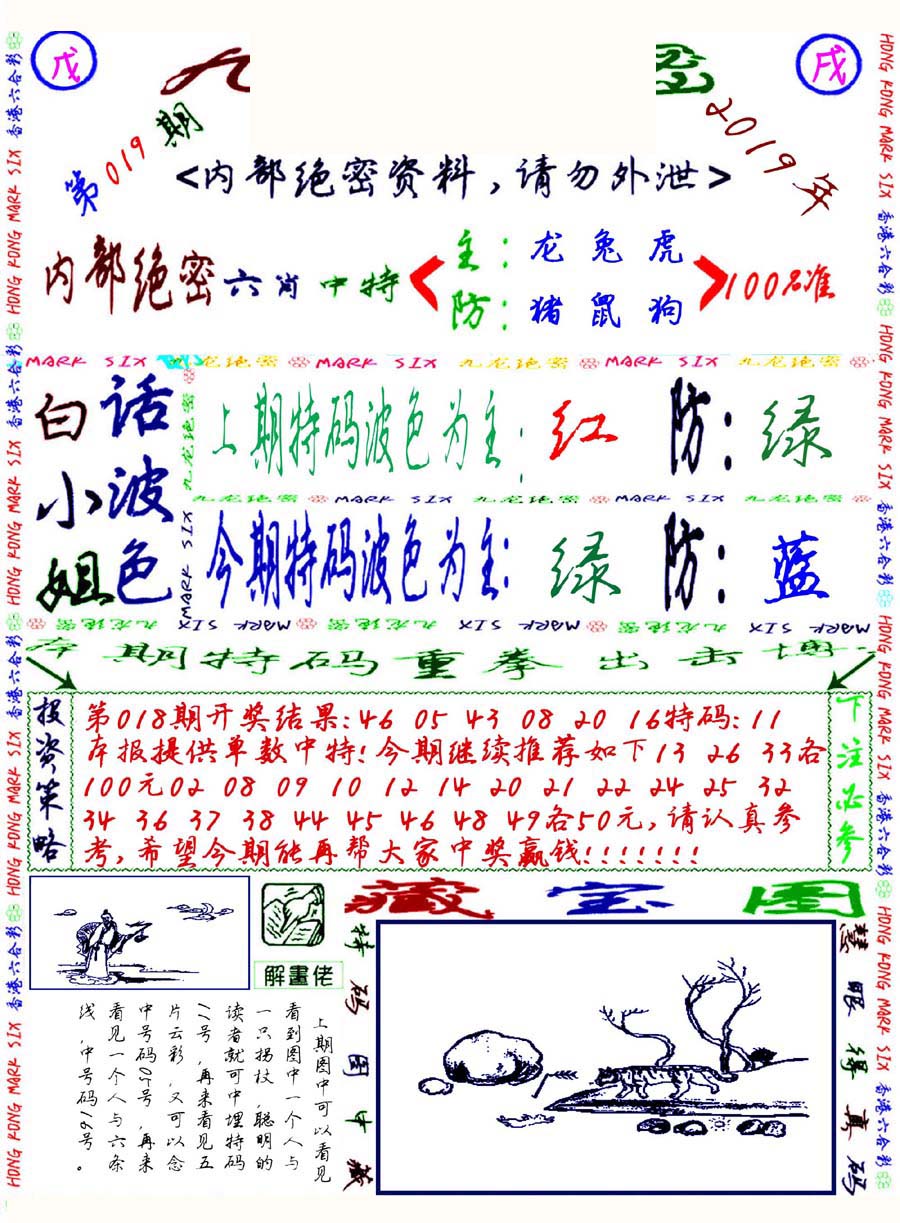 戊
戌
第019期
2019年
<内部绝密资料,请勿外泄>
内部绝密六肖中特
主:龙兔虎
防:猪鼠狗
100%准
MARK SIX 九龙绝密 MARK SIX 九龙绝密 MARK SIX 九龙绝密
白话
小波
姐色
上期特码波色为主:红 防:绿
九龙绝密 MARK SIX 九龙绝密 MARK SIX 九龙绝密
今期特码波色为主:绿 防:蓝
九龙绝密 MARK SIX 九龙绝密 MARK SIX 九龙绝密 MARK SIX
期特码重拳出击博
投资策略
第018期开奖结果:46 05 43 08 20 16特码:11
本报提供单数中特!今期继续推荐如下13 26 33各
100元02 08 09 10 12 14 20 21 22 24 25 32
34 36 37 38 44 45 46 48 49各50元,请认真参
考,希望今期能再帮大家中奖赢钱!!!!!!!
下注必参
解畫佬
藏宝图
上期图中可以看见
看到图中一个人与
一只拐杖,聪明的
读者就可中埋特码
11号,再来看见五
片云彩,又可以念
中号码05号,再来
看见一个人与六条
线,中号码16号。
特码图中藏
慧眼得真码
HONG KONG MARK SIX 香港六合彩
HONG KONG MARK SIX 香港六合彩